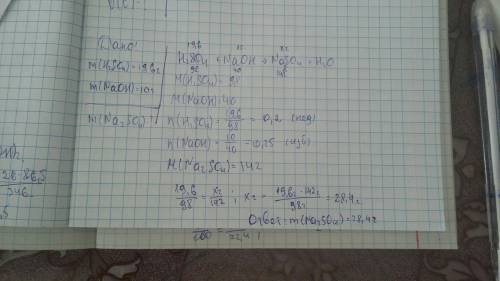 Дано:
m(H₂SO₄)=19,6г
m(NaOH)=10г
m(Na₂SO₄)
19,6 xг
H₂SO₄ + NaOH → Na₂SO₄ + H₂O
98 40 142
M(H₂SO₄)=98
M(NaOH)=40
n(H₂SO₄)=19,6/98=0,2 (нед)
n(NaOH)=10/40=0,25 (изб)
M(Na₂SO₄)=142
19,6/98=xг/142; xг=19,6г·142г/98г=28,4г
Ответ: m(Na₂SO₄)=28,4г